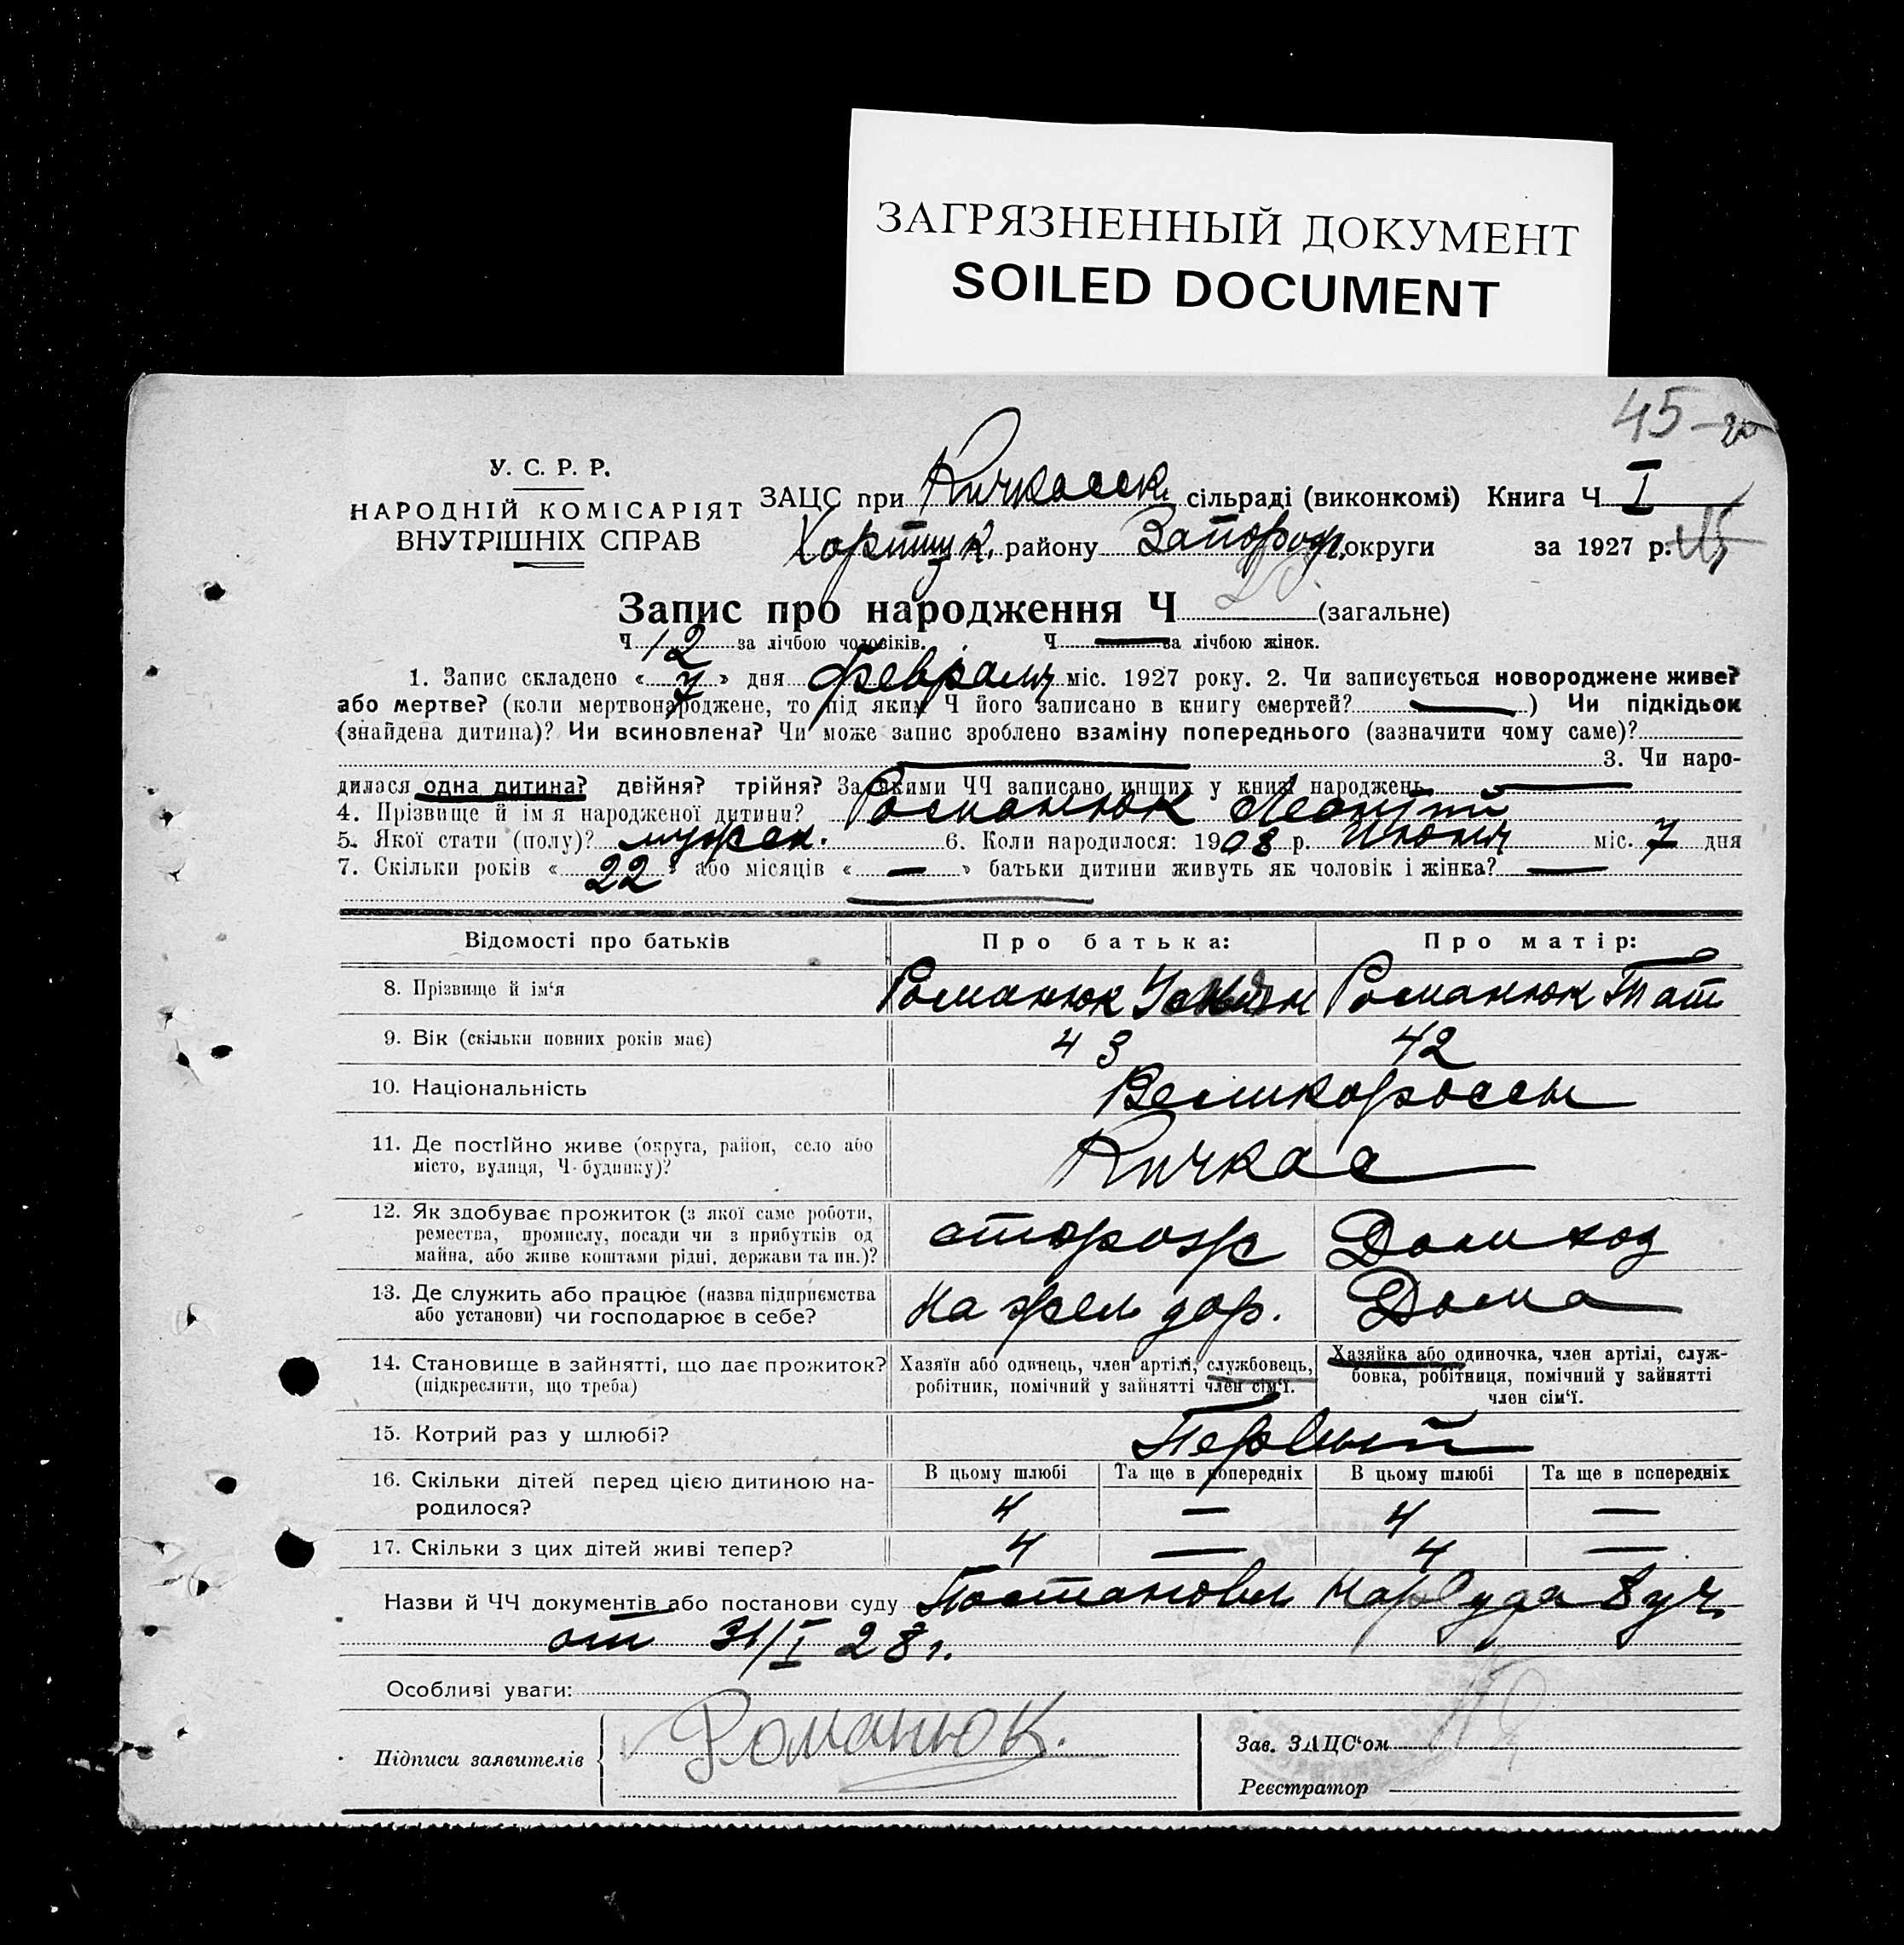 ЗАГРЯЗНЕННЫЙ ДОКУМЕНТ
SOILED DOCUMENT
45
У. С. Р. Р.
НАРОДНІЙ КОМІСАРІЯТ
ВНУТРІШНІХ СПРАВ
ЗАЦС при Кичкасск. сільраді (виконкомі) Книга Ч I
Хортиц к. району Запорож. округи за 1927 р.
Запис про народження Ч (загальне)
Ч 12 за лічбою чоловіків. Ч — за лічбою жінок.
1. Запис складено « 7 » дня февраля міс. 1927 року. 2. Чи записується новороджене живе?
або мертве? (коли мертвонароджене, то під яким Ч його записано в книгу смертей? — ) Чи підкідьок
(знайдена дитина)? Чи всиновлена? Чи може запис зроблено взаміну попереднього (зазначити чому саме)?
— 3. Чи наро-
дилася одна дитина? двійня? трійня? За якими ЧЧ записано инших у книзі народжень —
4. Прізвище й ім'я народженої дитини? Романюк Леонтій
5. Якої стати (полу)? мужск. 6. Коли народилося: 1908 р. Июня міс. 7 дня
7. Скільки років « 22 » або місяців « — » батьки дитини живуть як чоловік і жінка? —
Відомості про батьків Про батька: Про матір:
8. Прізвище й ім'я Романюк Романюк Тат
9. Вік (скільки повних років має) 43 42
10. Національність Великороссы
11. Де постійно живе (округа, район, село або Кичкас
місто, вулиця, Ч-будинку)?
12. Як здобуває прожиток (з якої саме роботи, сторож Домиход
ремества, промислу, посади чи з прибутків од
майна, або живе коштами рідні, держави та ин.)?
13. Де служить або працює (назва підприємства на жел дор. Дома
або установи) чи господарює в себе?
14. Становище в зайнятті, що дає прожиток? Хазяїн або одинець, член артілі, службовець, Хазяйка або одиночка, член артілі, служ-
(підкреслити, що треба) робітник, помічний у зайнятті член сім'ї. бовка, робітниця, помічний у зайнятті
член сім'ї.
15. Котрий раз у шлюбі? Первый
16. Скільки дітей перед цією дитиною на- В цьому шлюбі Та ще в попередніх В цьому шлюбі Та ще в попередніх
родилося? 4 — 4 —
17. Скільки з цих дітей живі тепер? 4 — 4 —
Назви й ЧЧ документів або постанови суду Постановл НарСуда 8 уч.
от 31/I 28 г.
Особливі уваги:
Підписи заявителів Романюк.
Зав. ЗАЦС'ом
Реєстратор